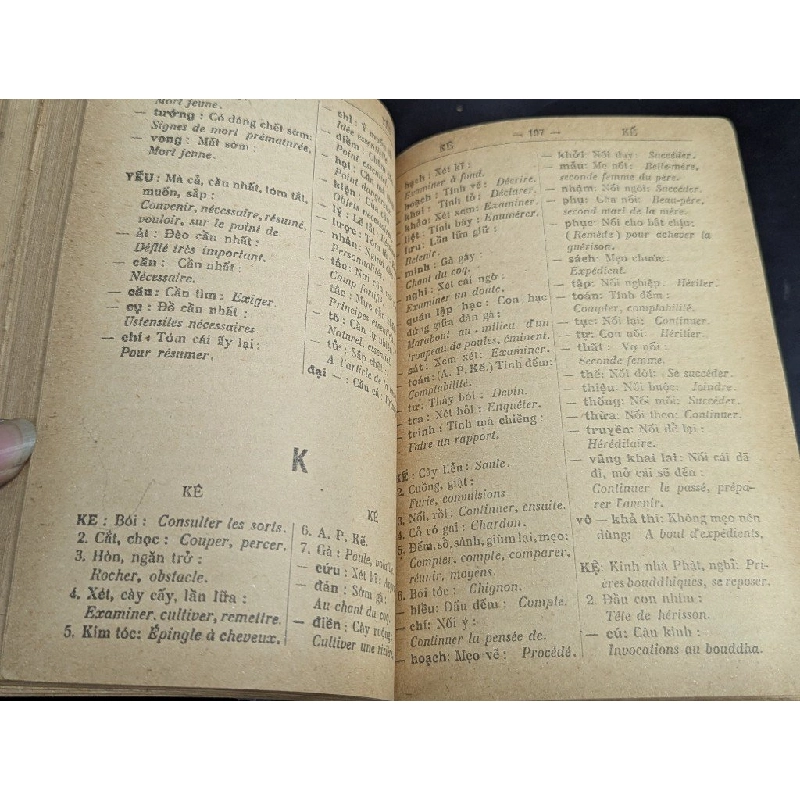 Mort jeune.
— tướng : Có dáng chết sớm:
Signes de mort prématurée.
— vong : Mất sớm :
Mort jeune.
YẾU: Mà cả, cần nhất, tóm tắt,
muốn, sắp :
Convenir, nécessaire, résumé,
vouloir, sur le point de
— ải : Đèo cần nhất :
Défilé très important.
— cần : Cần nhất :
Nécessaire.
— cầu: Cần tìm : Exiger.
— cụ : Đồ cần nhất :
Ustensiles nécessaires
— chỉ : Tóm cái ấy lại :
Pour résumer.
— chỉ : ý
Idée
— điểm :
Point
— hại :
Point
— kiện :
Objets
— lý : Lẽ
— lược :
— nhân :
— tảo :
Camp,
— tắc :
Principe
— tố :
Naturel,
— tử : Sắp chết
A l'article de
đại — : Câu cả :
K
KÊ
KÊ : Bói : Consulter les sorts.
2. Cắt, chọc : Couper, percer.
3. Hòn, ngăn trở :
Rocher, obstacle.
4. Xét, cày cấy, lần lữa :
Examiner, cultiver, remettre.
5. Kim tóc: Épingle à cheveux.
KÊ
6. A. P. Kế.
7. Gà : Poule,
— cứu : Xét kĩ :
— đán : Sớm gà :
Au chant du coq.
— điền : Cày ruộng :
Cultiver une
KÊ — 197 — KỆ
— hạch : Xét kĩ :
Examiner à fond.
— hoạch : Tính vẽ : Décrire.
— khai : Tính tỏ : Déclarer.
— khảo: Xét xem: Examiner
— liệt : Tính bày : Énumérer.
— lưu : Lần lữa giữ :
Retenir.
— minh : Gà gáy :
Chant du coq.
— nghi : Xét cái ngờ :
Examiner un doute.
— quần lập hạc : Con hạc
đứng giữa đàn gà :
Marabout au milieu d'un
troupeau de poules, éminent.
— sát : Xem xét : Examiner.
— toán: (A. P. Kế.) Tính đếm:
Comptabilité.
— tư : Thầy bói : Devin.
— tra : Xét hỏi : Enquêter.
— trình : Tính mà chiềng :
Faire un rapport.
KẾ : Cây liễn : Saule.
2. Cuồng, giật :
Furie, convulsions
3. Nối, rồi : Continuer, ensuite.
4. Cỏ có gai : Chardon.
5. Đếm, so sánh, gium lại, mẹo:
Compter, compte, comparer,
réunir, moyens.
6. Bới tóc : Chignon.
— biểu : Dấu đếm : Compte.
— chí : Nối ý :
Continuer la pensée de.
— hoạch: Mẹo vẽ : Procédé.
— khởi: Nối dậy : Succéder.
— mẫu: Mẹ nối : Belle-mère,
seconde femme du père.
— nhậm: Nối ngôi: Succéder.
— phụ: Cha nối: Beau-père,
second mari de la mère.
— phục: Nối cho hết chịu:
(Remède) pour achever la
guérison.
— sách : Mẹo chước:
Expédient.
— tập: Nối nghiệp : Hériter.
— toán: Tính đếm :
Compter, comptabilité.
— tục: Nối lại: Continuer.
— tự: Con nối: Héritier.
— thất : Vợ nối :
Seconde femme.
— thế: Nối dõi : Se succéder.
— thiệu: Nối buộc: Joindre.
— thống: Nối mối: Succéder.
— thừa: Nối theo: Continuer.
— truyền: Nối để lại :
Héréditaire.
— vãng khai lai: Nối cái đã
đi, mở cái sẽ đến :
Continuer le passé, prépa-
rer l'avenir.
vô — khả thi: Không mẹo nên
dùng: A bout d'expédients.
KỆ: Kinh nhà Phật, nghỉ: Pri-
ères bouddhiques, se reposer.
2. Đầu con nhím :
Tête de hérisson.
— cú: Câu kinh :
Invocations au bouddha.